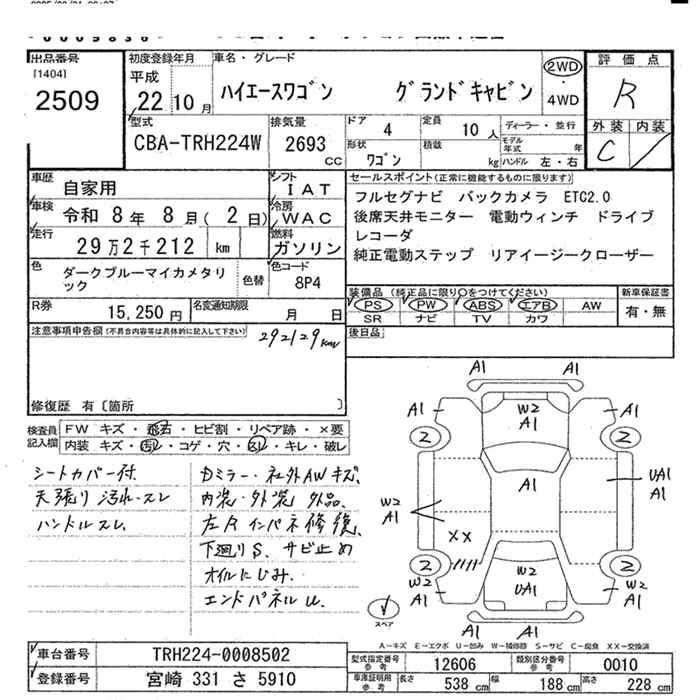 出品番号
[1404]
2509
初度登録年月
平成
22 10 月
車名・グレード
ハイエースワゴン グランドキャビン
2WD
・
4WD
評価点
R
外装 内装
C /
型式
CBA-TRH224W
排気量
2693
cc
ドア 4
定員 10 人
ディーラー・並行
形状
ワゴン
積載 kg
モデル年式 年
ハンドル 左・右
車歴 自家用
シフト IAT
車検 令和 8 年 8 月 ( 2 日)
冷房 WAC
走行 29万2千212 km
燃料 ガソリン
色 ダークブルーマイカメタリック
色替
色コード 8P4
R券 15,250 円
名変通知期限 月 日
セールスポイント(正常に機能するものに限ります)
フルセグナビ バックカメラ ETC2.0
後席天井モニター 電動ウィンチ ドライブ
レコーダ
純正電動ステップ リアイージークローザー
装備品 (純正品に限り○をつけてください)
PS PW ABS エアB AW
SR ナビ TV カワ
新車保証書
有・無
後日品
注意事項申告欄(不具合内容等は具体的に記入して下さい)
292129km
修復歴 有〔箇所 〕
検査員記入欄
FW キズ・飛石・ヒビ割・リペア跡・×要
内装 キズ・汚レ・コゲ・穴・スレ・キレ・破レ
シートカバー付
天張り汚れ・スレ
ハンドルスレ
Dミラー・社外AWキズ、
内装・外装 外品、
左Rインパネ修復、
下廻りS、サビ止め
オイルにじみ.
エンドパネルU.
A1 A1
A1 W2 A1 A1
2 2
A1
UA1
A1
W2
A1
XX
2 2
W2 A1
W2
UA1
W2
A1
A1
スペア
A-キズ E-エクボ U-凹み W-補修跡 S-サビ C-腐食 XX-交換済
車台番号 TRH224-0008502
登録番号 宮崎 331 さ 5910
型式指定番号 参考 12606
類別区分番号 参考 0010
車庫証明用 参考 長さ 538 cm 幅 188 cm 高さ 228 cm